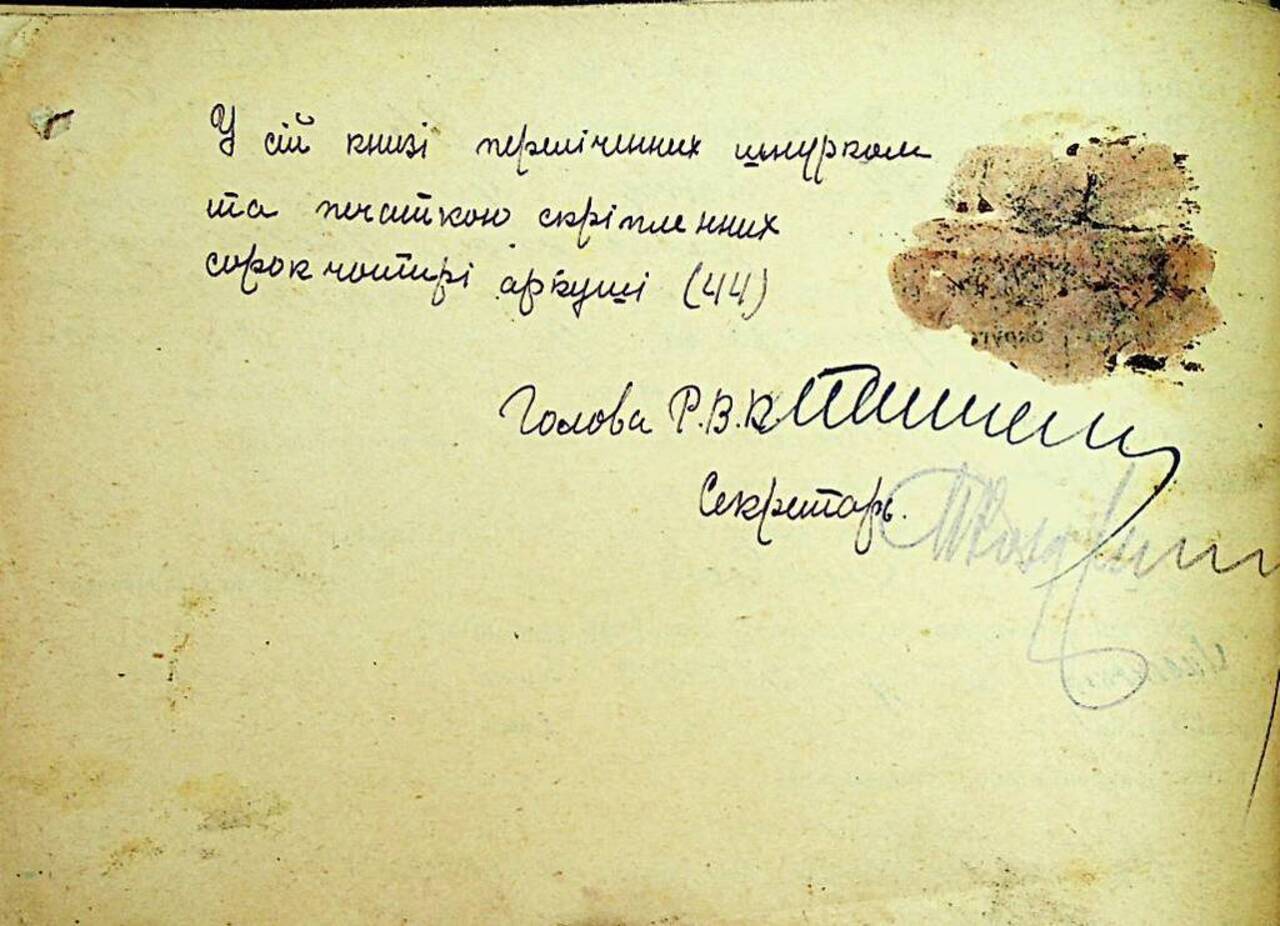 У сій книзі переліченних шнурком
та печаткою скріпленних
сорок чотирі аркуші (44)
Голова Р.В.К.
Секретарь.